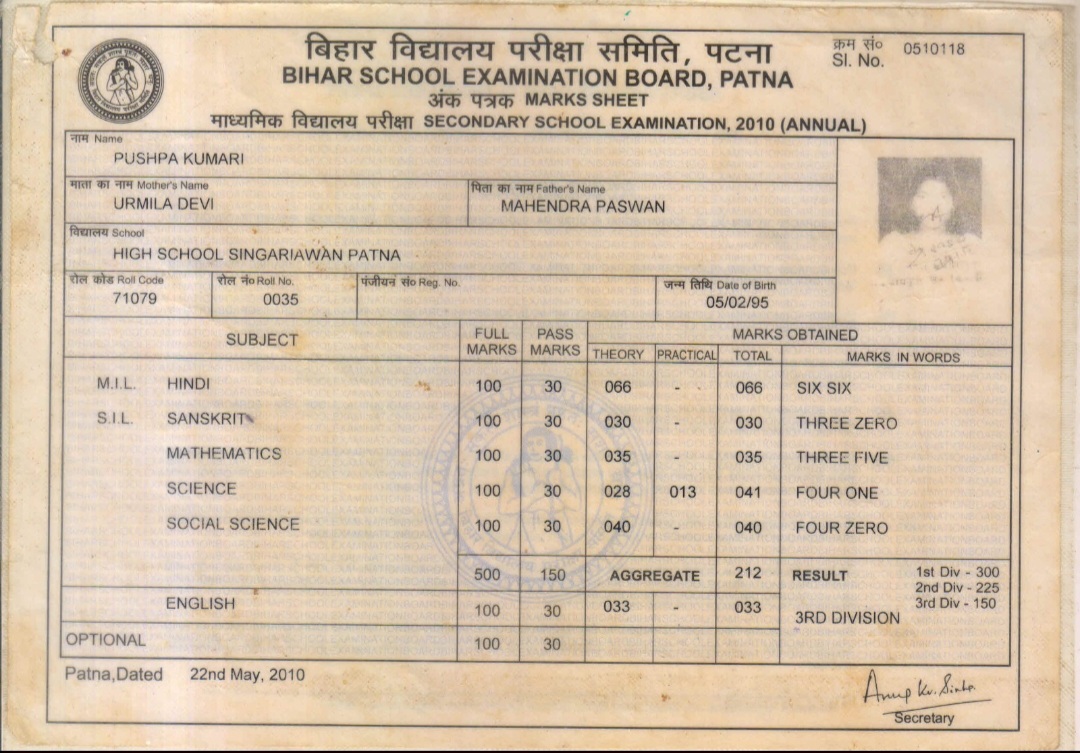 बिहार विद्यालय परीक्षा समिति, पटना
क्रम सं० 0510118
Sl. No.
BIHAR SCHOOL EXAMINATION BOARD, PATNA
अंक पत्रक MARKS SHEET
माध्यमिक विद्यालय परीक्षा SECONDARY SCHOOL EXAMINATION, 2010 (ANNUAL)
नाम Name
PUSHPA KUMARI
माता का नाम Mother's Name पिता का नाम Father's Name
URMILA DEVI MAHENDRA PASWAN
विद्यालय School
HIGH SCHOOL SINGARIAWAN PATNA
रोल कोड Roll Code रोल नं० Roll No. पंजीयन सं० Reg. No. जन्म तिथि Date of Birth
71079 0035 05/02/95
SUBJECT FULL MARKS PASS MARKS MARKS OBTAINED
THEORY PRACTICAL TOTAL MARKS IN WORDS
M.I.L. HINDI 100 30 066 - 066 SIX SIX
S.I.L. SANSKRIT 100 30 030 - 030 THREE ZERO
MATHEMATICS 100 30 035 - 035 THREE FIVE
SCIENCE 100 30 028 013 041 FOUR ONE
SOCIAL SCIENCE 100 30 040 - 040 FOUR ZERO
500 150 AGGREGATE 212 RESULT 1st Div - 300
2nd Div - 225
3rd Div - 150
ENGLISH 100 30 033 - 033 3RD DIVISION
OPTIONAL 100 30
Patna,Dated 22nd May, 2010
Anup Kr. Sinha
Secretary